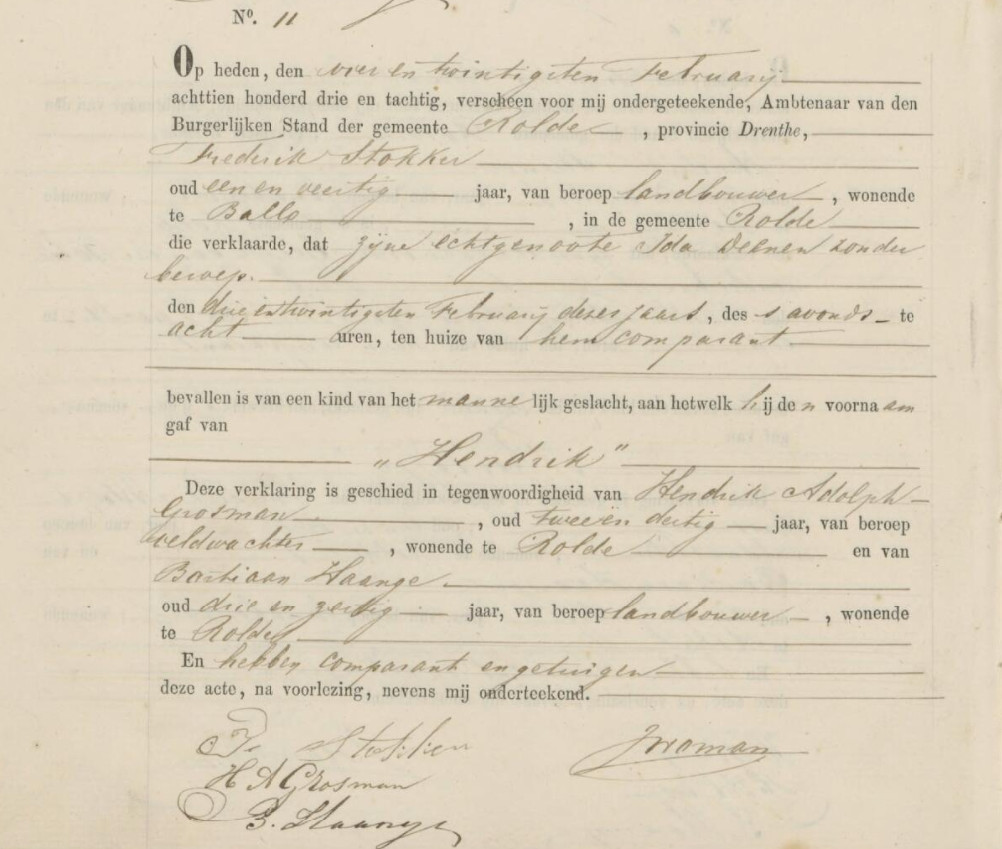 Nº. 11
Op heden, den vier en twintigsten Februarij
achttien honderd drie en tachtig, verscheen voor mij ondergeteekende, Ambtenaar van den
Burgerlijken Stand der gemeente Rolde, provincie Drenthe,
Frederik Stokker
oud een en veertig jaar, van beroep landbouwer, wonende
te Ballo, in de gemeente Rolde
die verklaarde, dat zijne echtgenoote Ida Deenen zonder
beroep.
den drie en twintigsten Februarij dezes jaars, des s avonds te
acht uren, ten huize van hem comparant
bevallen is van een kind van het mannelijk geslacht, aan hetwelk hij den voornaam
gaf van
„Hendrik"
Deze verklaring is geschied in tegenwoordigheid van Hendrik Adolph
Grosman, oud twee en dertig jaar, van beroep
veldwachter, wonende te Rolde en van
Bastiaan Haange
oud drie en zestig jaar, van beroep landbouwer, wonende
te Rolde
En hebben comparant en getuigen
deze acte, na voorlezing, nevens mij onderteekend.
H A Grosman
B. Haange